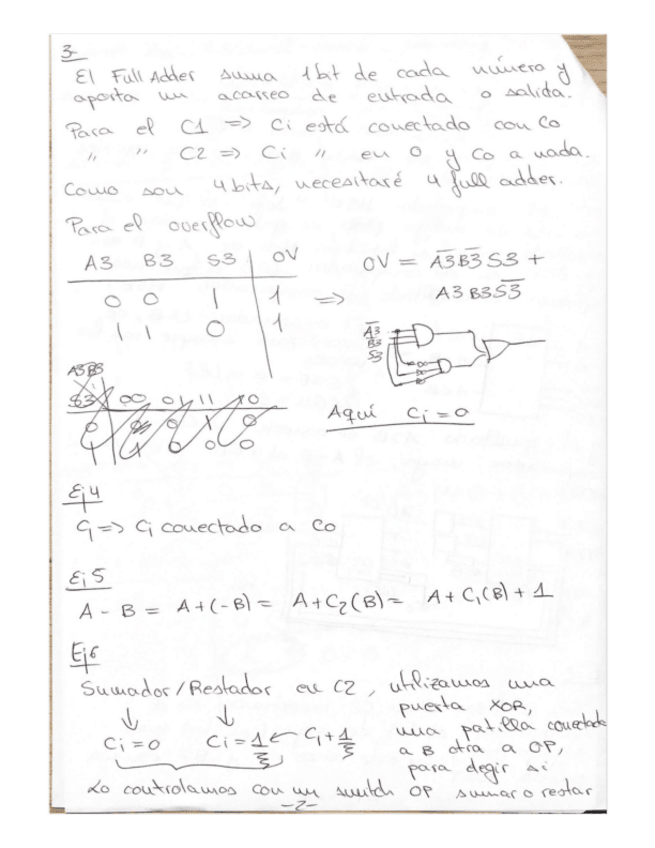 3-
El Full Adder suma 1 bit de cada número y
aporta un acarreo de entrada o salida.
Para el C1 => Ci está conectado con Co
" " C2 => Ci " en 0 y Co a nada.
Como son 4 bits, necesitaré 4 full adder.
Para el overflow
A3 B3 S3 OV
0 0 1 1
1 1 0 1
=>
OV = A̅3̅ B̅3̅ S3 +
A3 B3 S̅3̅
A̅3̅
B3
S3
A3B3
S3 00 01 11 10
0 0 1 0
1 1 0 0 0
Aquí Ci = 0
Ej 4
C1 => Ci conectado a Co
Ej 5
A - B = A + (-B) = A + C2(B) = A + C1(B) + 1
Ej 6
Sumador/Restador en C2, utilizamos una
puerta XOR,
una patilla conectada
a B otra a OP,
para elegir si
Ci = 0 Ci = 1 ← C1 + 1
Lo controlamos con un switch OP sumar o restar
-2-